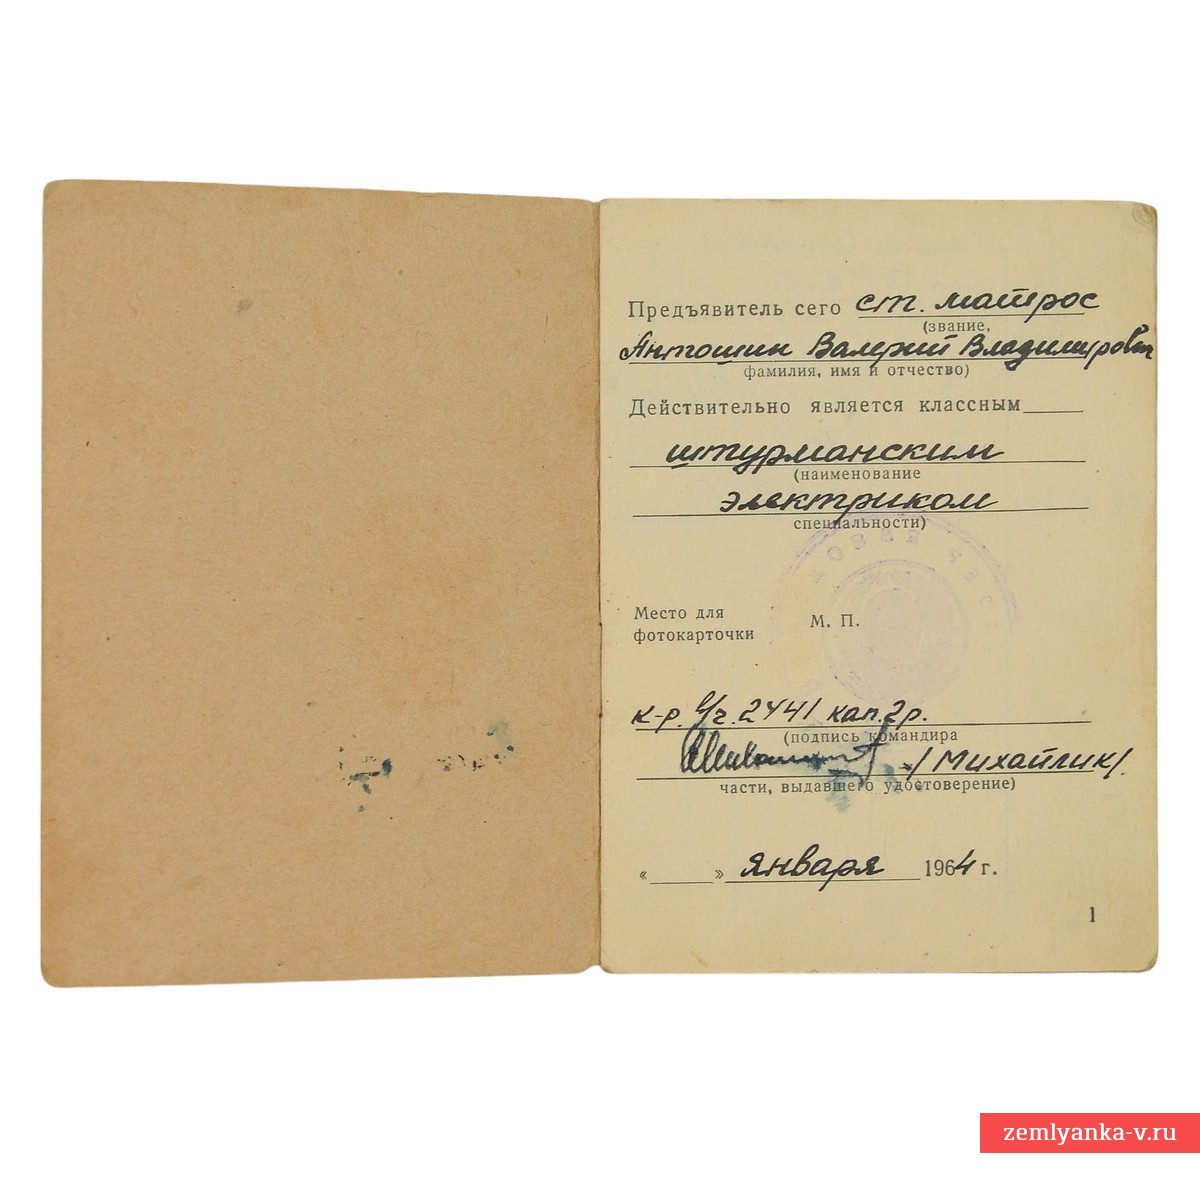 Предъявитель сего ст. матрос
(звание,
Антошин Валерий Владимирович
фамилия, имя и отчество)
Действительно является классным
штурманским
(наименование
электриком
специальности)
Место для
фотокарточки
М. П.
к-р. в/ч. 2441 кап. 2р.
(подпись командира
/Михайлик/.
части, выдавшего удостоверение)
« » января 1964 г.
1
zemlyanka-v.ru